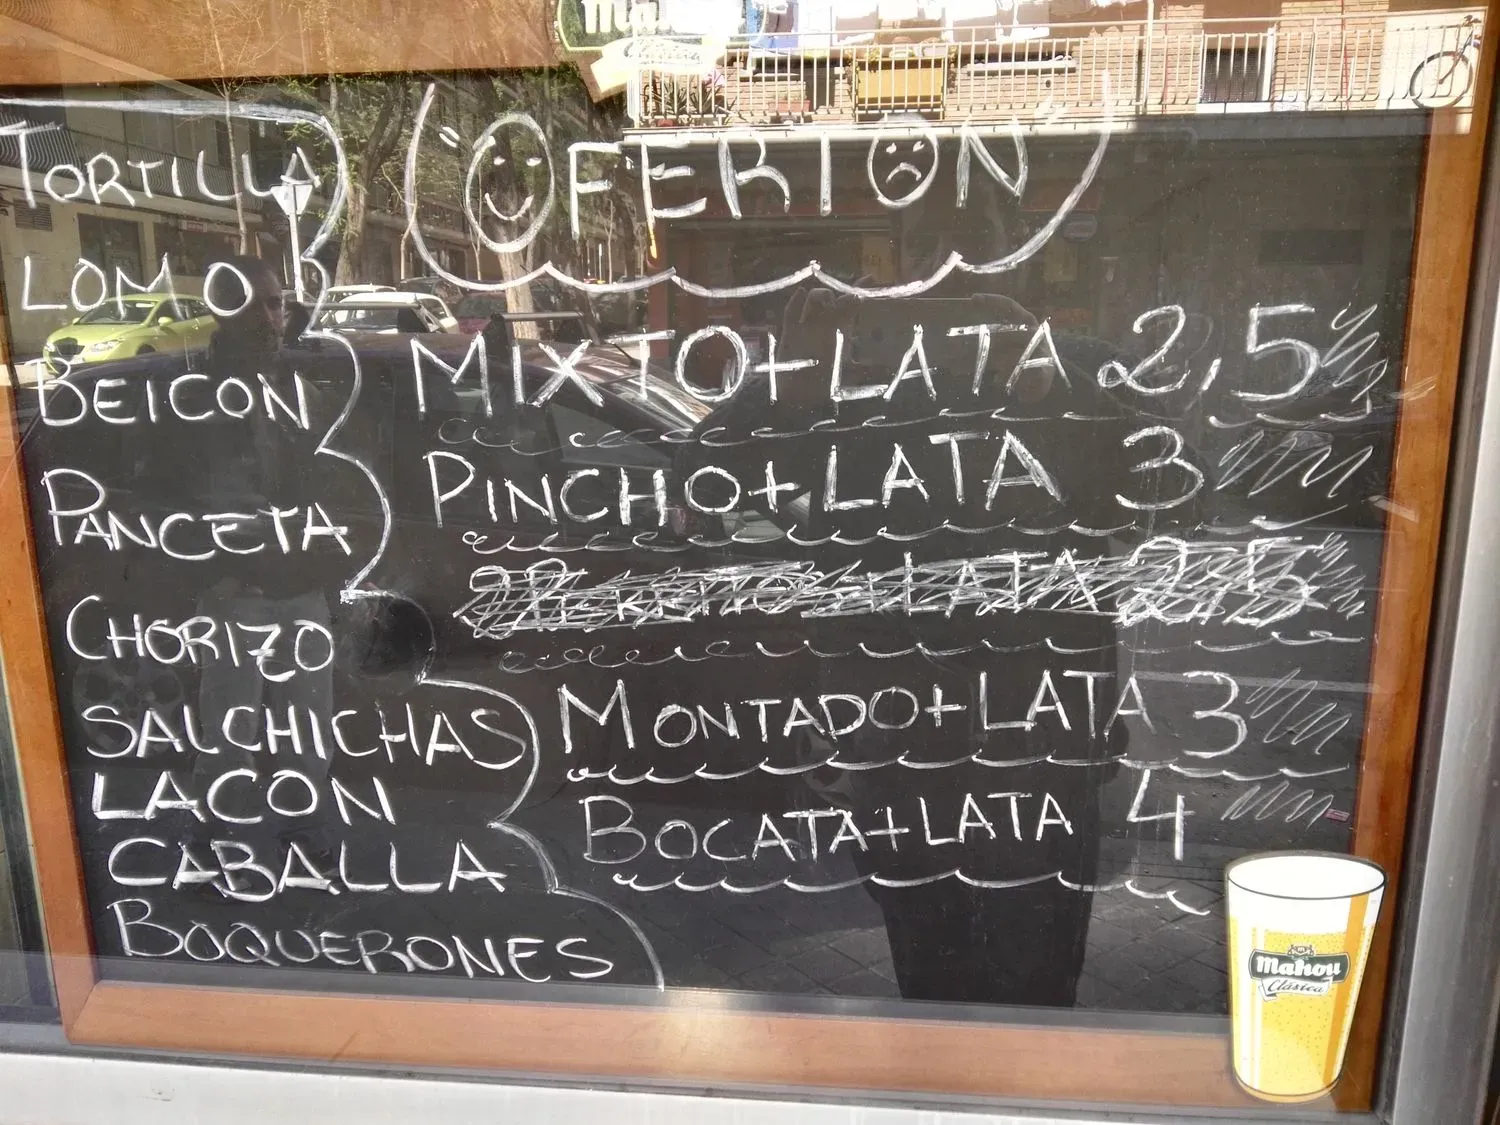 Mahou
Clásica
"OFERTON"
TORTILLA
LOMO
BEICON
PANCETA
CHORIZO
SALCHICHAS
LACON
CABALLA
BOQUERONES
MIXTO+LATA 2,5
PINCHO+LATA 3
PERRITO+LATA 2,5
MONTADO+LATA 3
BOCATA+LATA 4
Mahou
Clásica